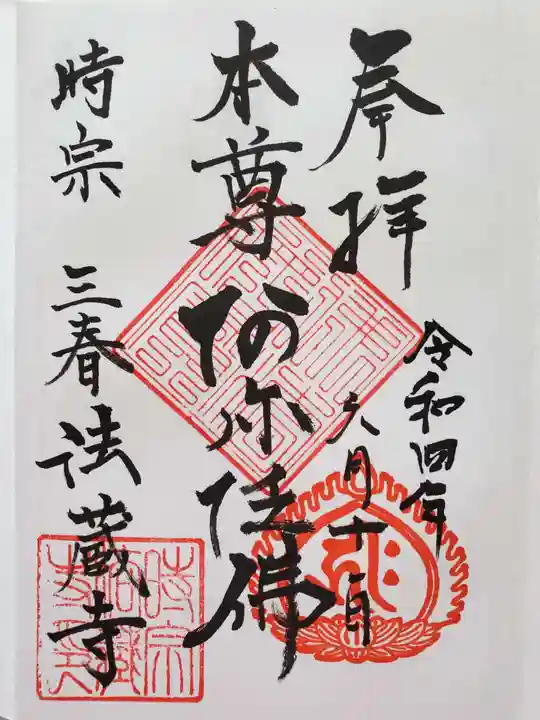 奉拝
令和四年
六月十一日
本尊阿弥陀佛
時宗 三春法蔵寺
時宗
法蔵
寺印